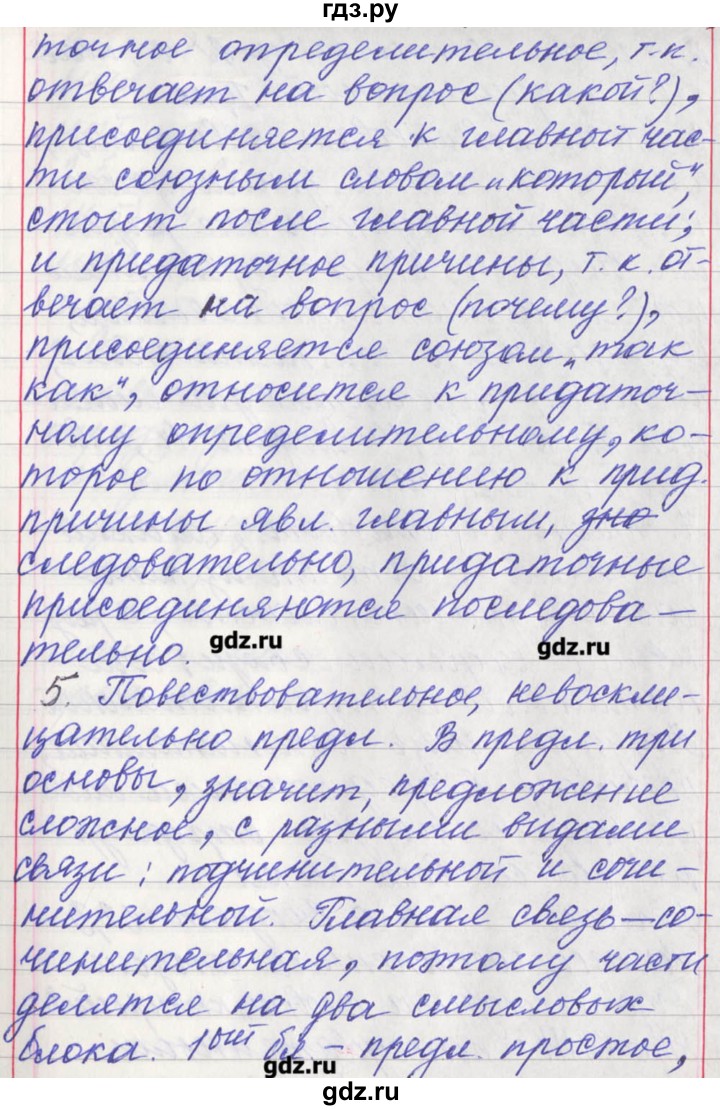 гдз.ру
точное определительное, т.к.
отвечает на вопрос (какой?),
присоединяется к главной час-
ти союзным словом „который",
стоит после главной части;
и придаточное причины, т.к. от-
вечает на вопрос (почему?),
присоединяется союзом „так
как", относится к придаточ-
ному определительному, ко-
торое по отношению к прид.
причины явл. главным, зна
следовательно, придаточные
присоединяются последова-
тельно.
gdz.ru gdz.ru
5. Повествовательное, невоскли-
цательно предл. В предл. три
основы, значит, предложение
сложное, с разными видами
связи: подчинительной и сочи-
нительной. Главная связь – со-
чинительная, поэтому части
делятся на два смысловых
блока. 1ый бл – предл. простое,
gdz.ru gdz.ru
gdz.ru